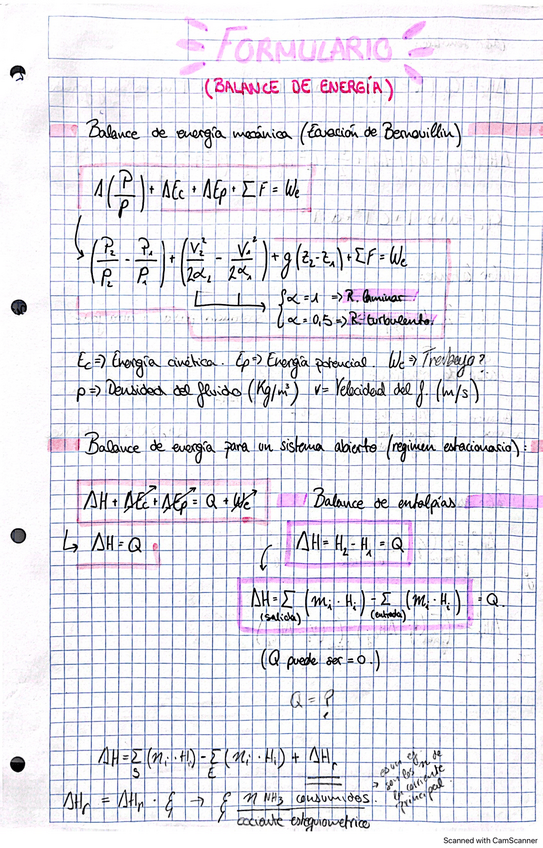 FORMULARIO
(BALANCE DE ENERGÍA)
Balance de energía mecánica (Ecuación de Bernouillin)
Δ(P/ρ) + ΔEc + ΔEp + ΣF = We
(P₂/ρ₂ - P₁/ρ₁) + (V₂²/2α₂ - V₁²/2α₁) + g(z₂-z₁) + ΣF = We
α = 1 => R. laminar
α = 0,5 => R. turbulento.
Ec => Energía cinética. Ep => Energía potencial. We => Trabajo?
ρ => Densidad del fluido (Kg/m³) v = Velocidad del f. (m/s)
Balance de energía para un sistema abierto (regimen estacionario):
ΔH + ΔEc + ΔEp = Q + We
Balance de entalpías
↳ ΔH = Q
ΔH = H₂ - H₁ = Q
ΔH = Σ (mi · Hi) - Σ (mi · Hi) = Q.
(salida) (entrada)
(Q puede ser = 0.)
Q = ?
ΔH = Σ (ni · Hi) - Σ (ni · Hi) + ΔHr
S E
es un ej
son los n de
la corriente
principal.
ΔHr = ΔHr · ξ → ξ n NH3 consumidos.
cociente estequiometrico
Scanned with CamScanner